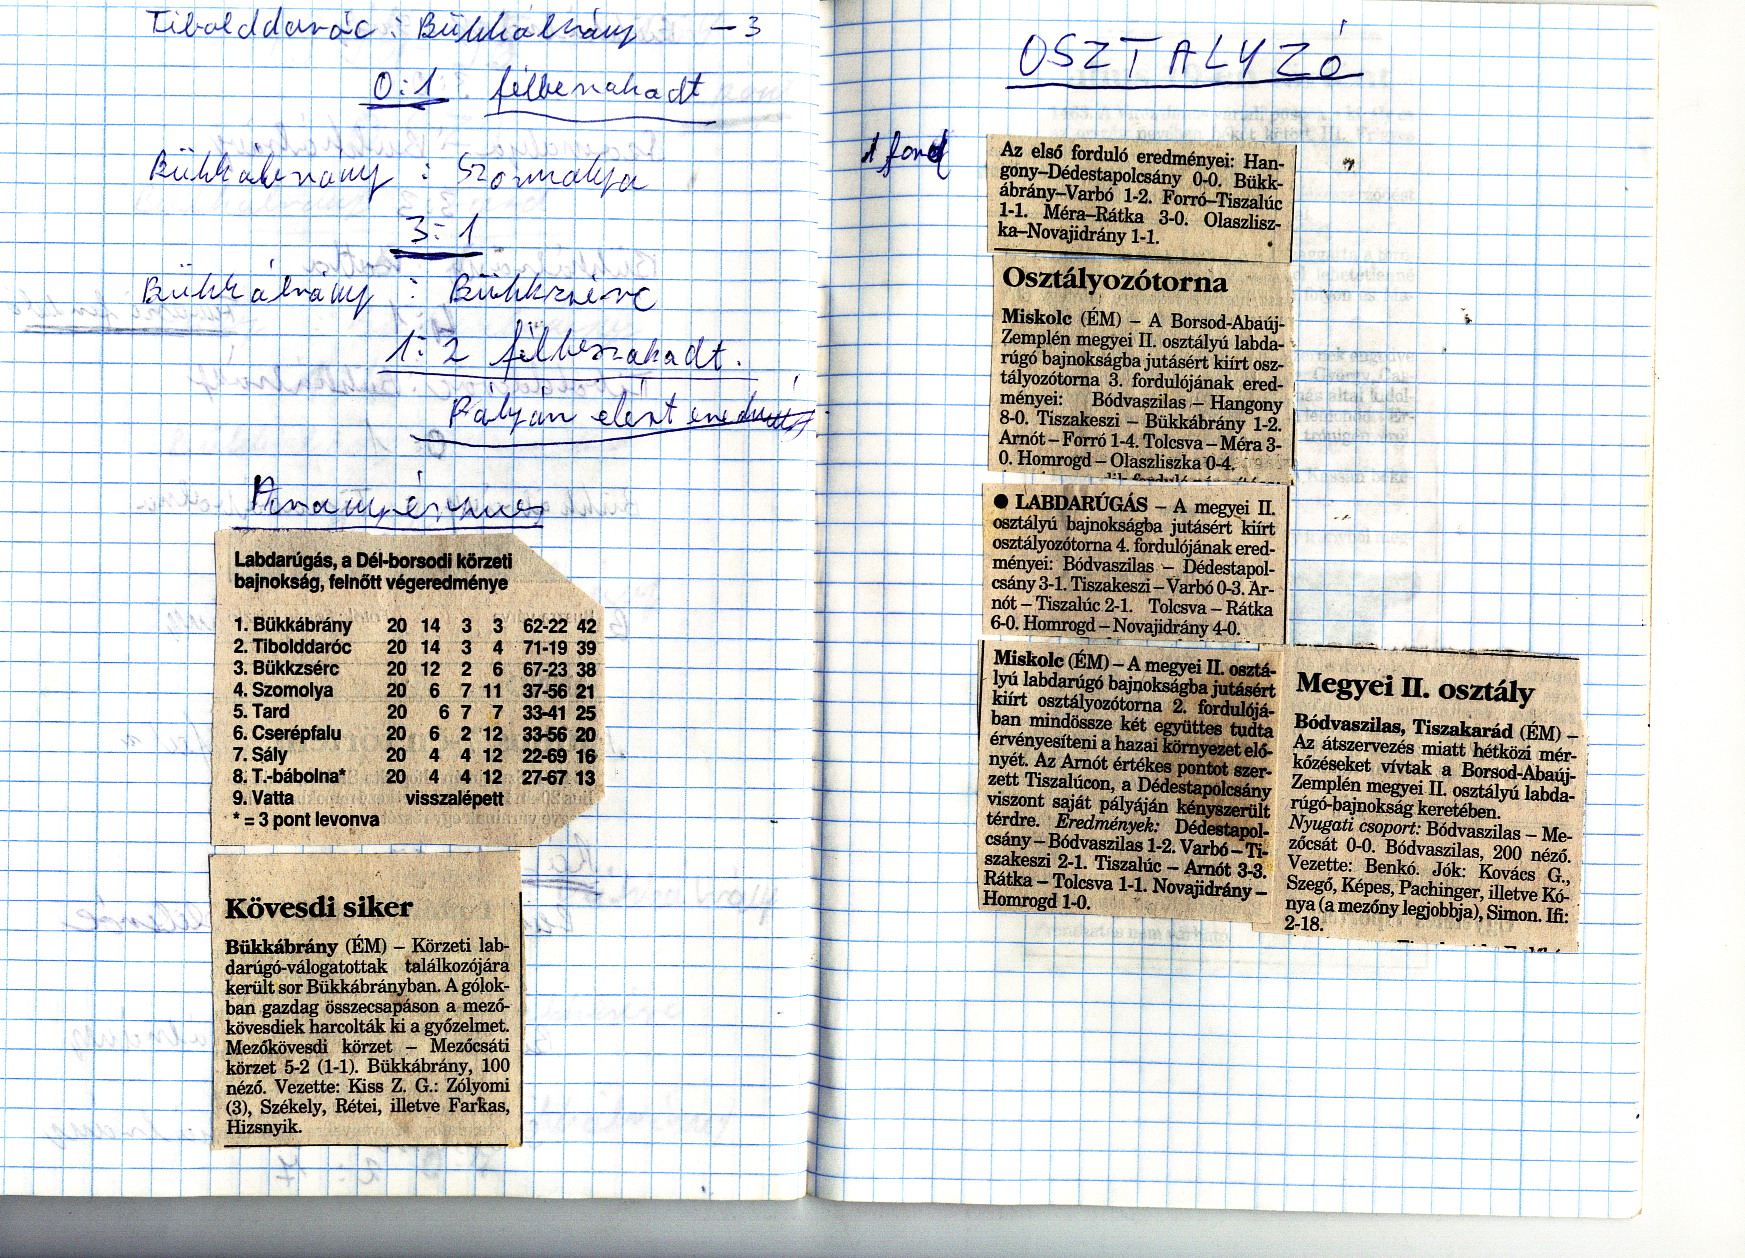 Tibolddaróc : Bükkábrány - 3
0:1 félbeszakadt
Bükkábrány : Szomolya
3:1
Bükkábrány : Bükkzsérc
1:2 félbeszakadt.
Pályán elért
Aranyérmes
Labdarúgás, a Dél-borsodi körzeti
bajnokság, felnőtt végeredménye
1. Bükkábrány 20 14 3 3 62-22 42
2. Tibolddaróc 20 14 3 4 71-19 39
3. Bükkzsérc 20 12 2 6 67-23 38
4. Szomolya 20 6 7 11 37-56 21
5. Tard 20 6 7 7 33-41 25
6. Cserépfalu 20 6 2 12 33-56 20
7. Sály 20 4 4 12 22-69 16
8. T.-bábolna* 20 4 4 12 27-67 13
9. Vatta visszalépett
* = 3 pont levonva
Kövesdi siker
Bükkábrány (ÉM) – Körzeti lab-
darúgó-válogatottak találkozójára
került sor Bükkábrányban. A gólok-
ban gazdag összecsapáson a mező-
kövesdiek harcolták ki a győzelmet.
Mezőkövesdi körzet – Mezőcsáti
körzet 5-2 (1-1). Bükkábrány, 100
néző. Vezette: Kiss Z. G.: Zólyomi
(3), Székely, Rétei, illetve Farkas,
Hizsnyik.
OSZTALYZÓ
1 ford
Az első forduló eredményei: Han-
gony–Dédestapolcsány 0-0. Bükk-
ábrány–Varbó 1-2. Forró–Tiszalúc
1-1. Méra–Rátka 3-0. Olaszlisz-
ka–Novajidrány 1-1.
Osztályozótorna
Miskolc (ÉM) – A Borsod-Abaúj-
Zemplén megyei II. osztályú labda-
rúgó bajnokságba jutásért kiírt osz-
tályozótorna 3. fordulójának ered-
ményei: Bódvaszilas – Hangony
8-0. Tiszakeszi – Bükkábrány 1-2.
Arnót – Forró 1-4. Tolcsva – Méra 3-
0. Homrogd – Olaszliszka 0-4.
● LABDARÚGÁS – A megyei II.
osztályú bajnokságba jutásért kiírt
osztályozótorna 4. fordulójának ered-
ményei: Bódvaszilas – Dédestapol-
csány 3-1. Tiszakeszi – Varbó 0-3. Ar-
nót – Tiszalúc 2-1. Tolcsva – Rátka
6-0. Homrogd – Novajidrány 4-0.
Miskolc (ÉM) – A megyei II. osztá-
lyú labdarúgó bajnokságba jutásért
kiírt osztályozótorna 2. fordulójá-
ban mindössze két együttes tudta
érvényesíteni a hazai környezet elő-
nyét. Az Arnót értékes pontot szer-
zett Tiszalúcon, a Dédestapolcsány
viszont saját pályáján kényszerült
térdre. Eredmények: Dédestapol-
csány – Bódvaszilas 1-2. Varbó – Ti-
szakeszi 2-1. Tiszalúc – Arnót 3-3.
Rátka – Tolcsva 1-1. Novajidrány –
Homrogd 1-0.
Megyei II. osztály
Bódvaszilas, Tiszakarád (ÉM) –
Az átszervezés miatt hétközi mér-
kőzéseket vívtak a Borsod-Abaúj-
Zemplén megyei II. osztályú labda-
rúgó-bajnokság keretében.
Nyugati csoport: Bódvaszilas – Me-
zőcsát 0-0. Bódvaszilas, 200 néző.
Vezette: Benkó. Jók: Kovács G.,
Szegő, Képes, Pachinger, illetve Kó-
nya (a mezőny legjobbja), Simon. Ifi:
2-18.